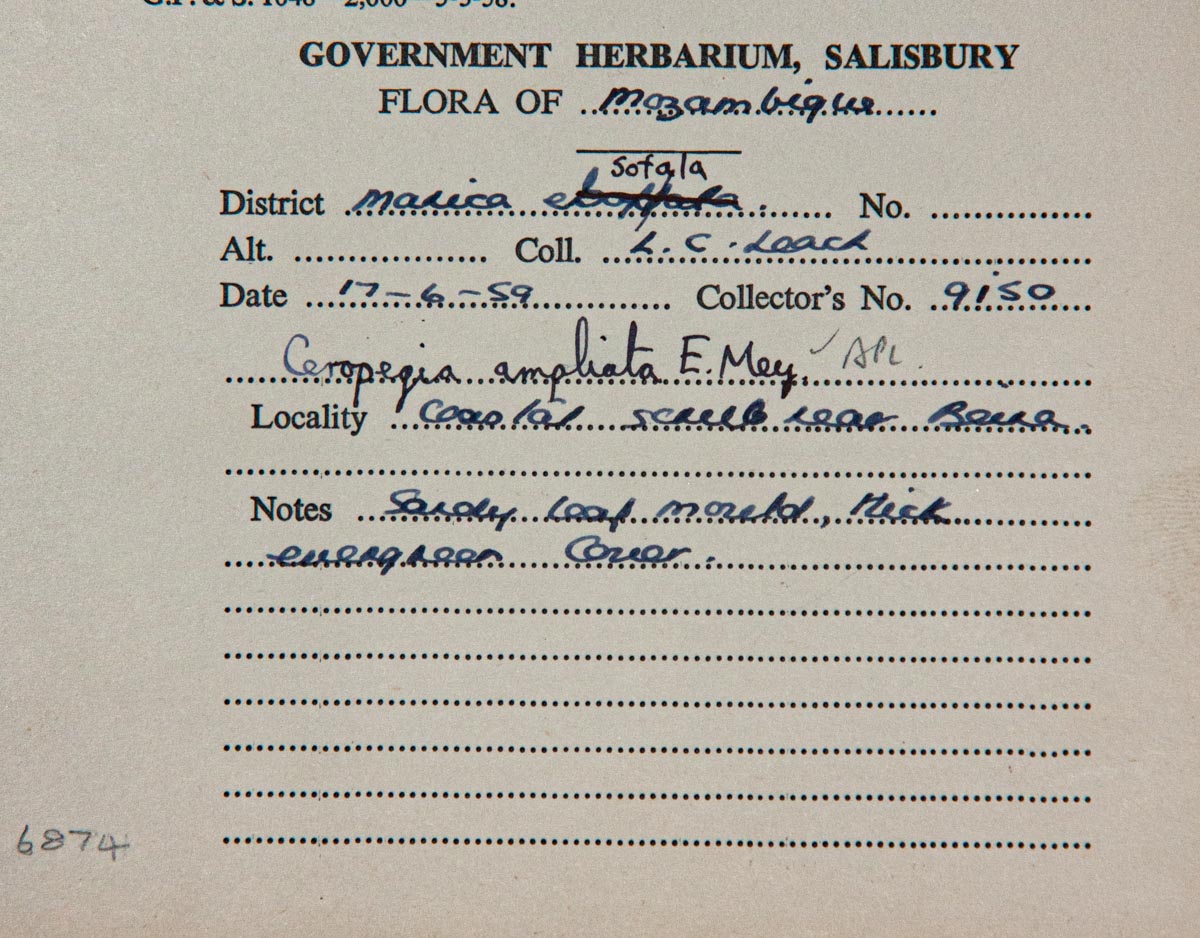 G.P. & S. 1048—2,000—3-3-58.
GOVERNMENT HERBARIUM, SALISBURY
FLORA OF Mozambique
Sofala
District Manica e No.
Alt. Coll. L. C. Leach
Date 17-6-59 Collector's No. 9150
Ceropegia ampliata E. Mey. ✓ APL
Locality Coastal scrub near Beira.
Notes Sandy loaf mould, thick
evergreen Cover.
6874